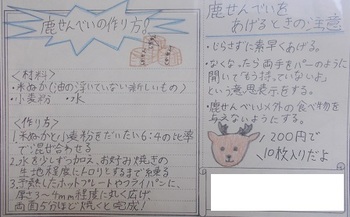 鹿せんべいの作り方!
<材料>
・米ぬか(油の浮いていない新しいもの)
・小麦粉 ・水
<作り方>
1.米ぬかと小麦粉をだいたい6:4の比率
で混ぜ合わせる
2.水を少しずつ加え、お好み焼きの
生地程度にトロリとするまで練る
3.予熱したホットプレートやフライパンに、
厚さ3~4mm程度に丸く広げ、
両面5分ほど焼くと完成!
鹿せんべいを
あげるときの注意
・じらさずに素早くあげる。
・なくなったら両手をパーのように
開いて「もう持っていないよ」
という意思表示をする。
・鹿せんべい以外の食べ物を
与えないようにする。
200円で
10枚入りだよ